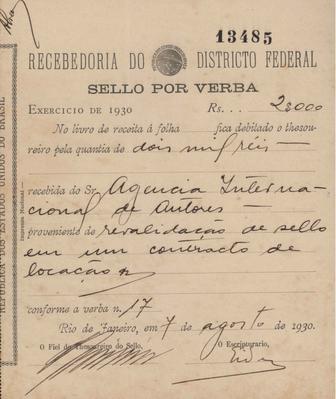 13485
RECEBEDORIA DO DISTRICTO FEDERAL
SELLO POR VERBA
EXERCICIO DE 1930 Rs... 2$000
No livro de receita á folha fica debitado o thesou-
reiro pela quantia de dois mil reis
recebida do Sr. Agencia Interna-
cional de Autores
proveniente de revalidação de sello
em um contracto de
locação
conforme a verba n. 17
Rio de Janeiro, em 7 de agosto de 1930.
O Fiel do Thesoureiro do Sello, O Escripturario,
REPUBLICA DOS ESTADOS UNIDOS DO BRASIL
Imprensa Nacional